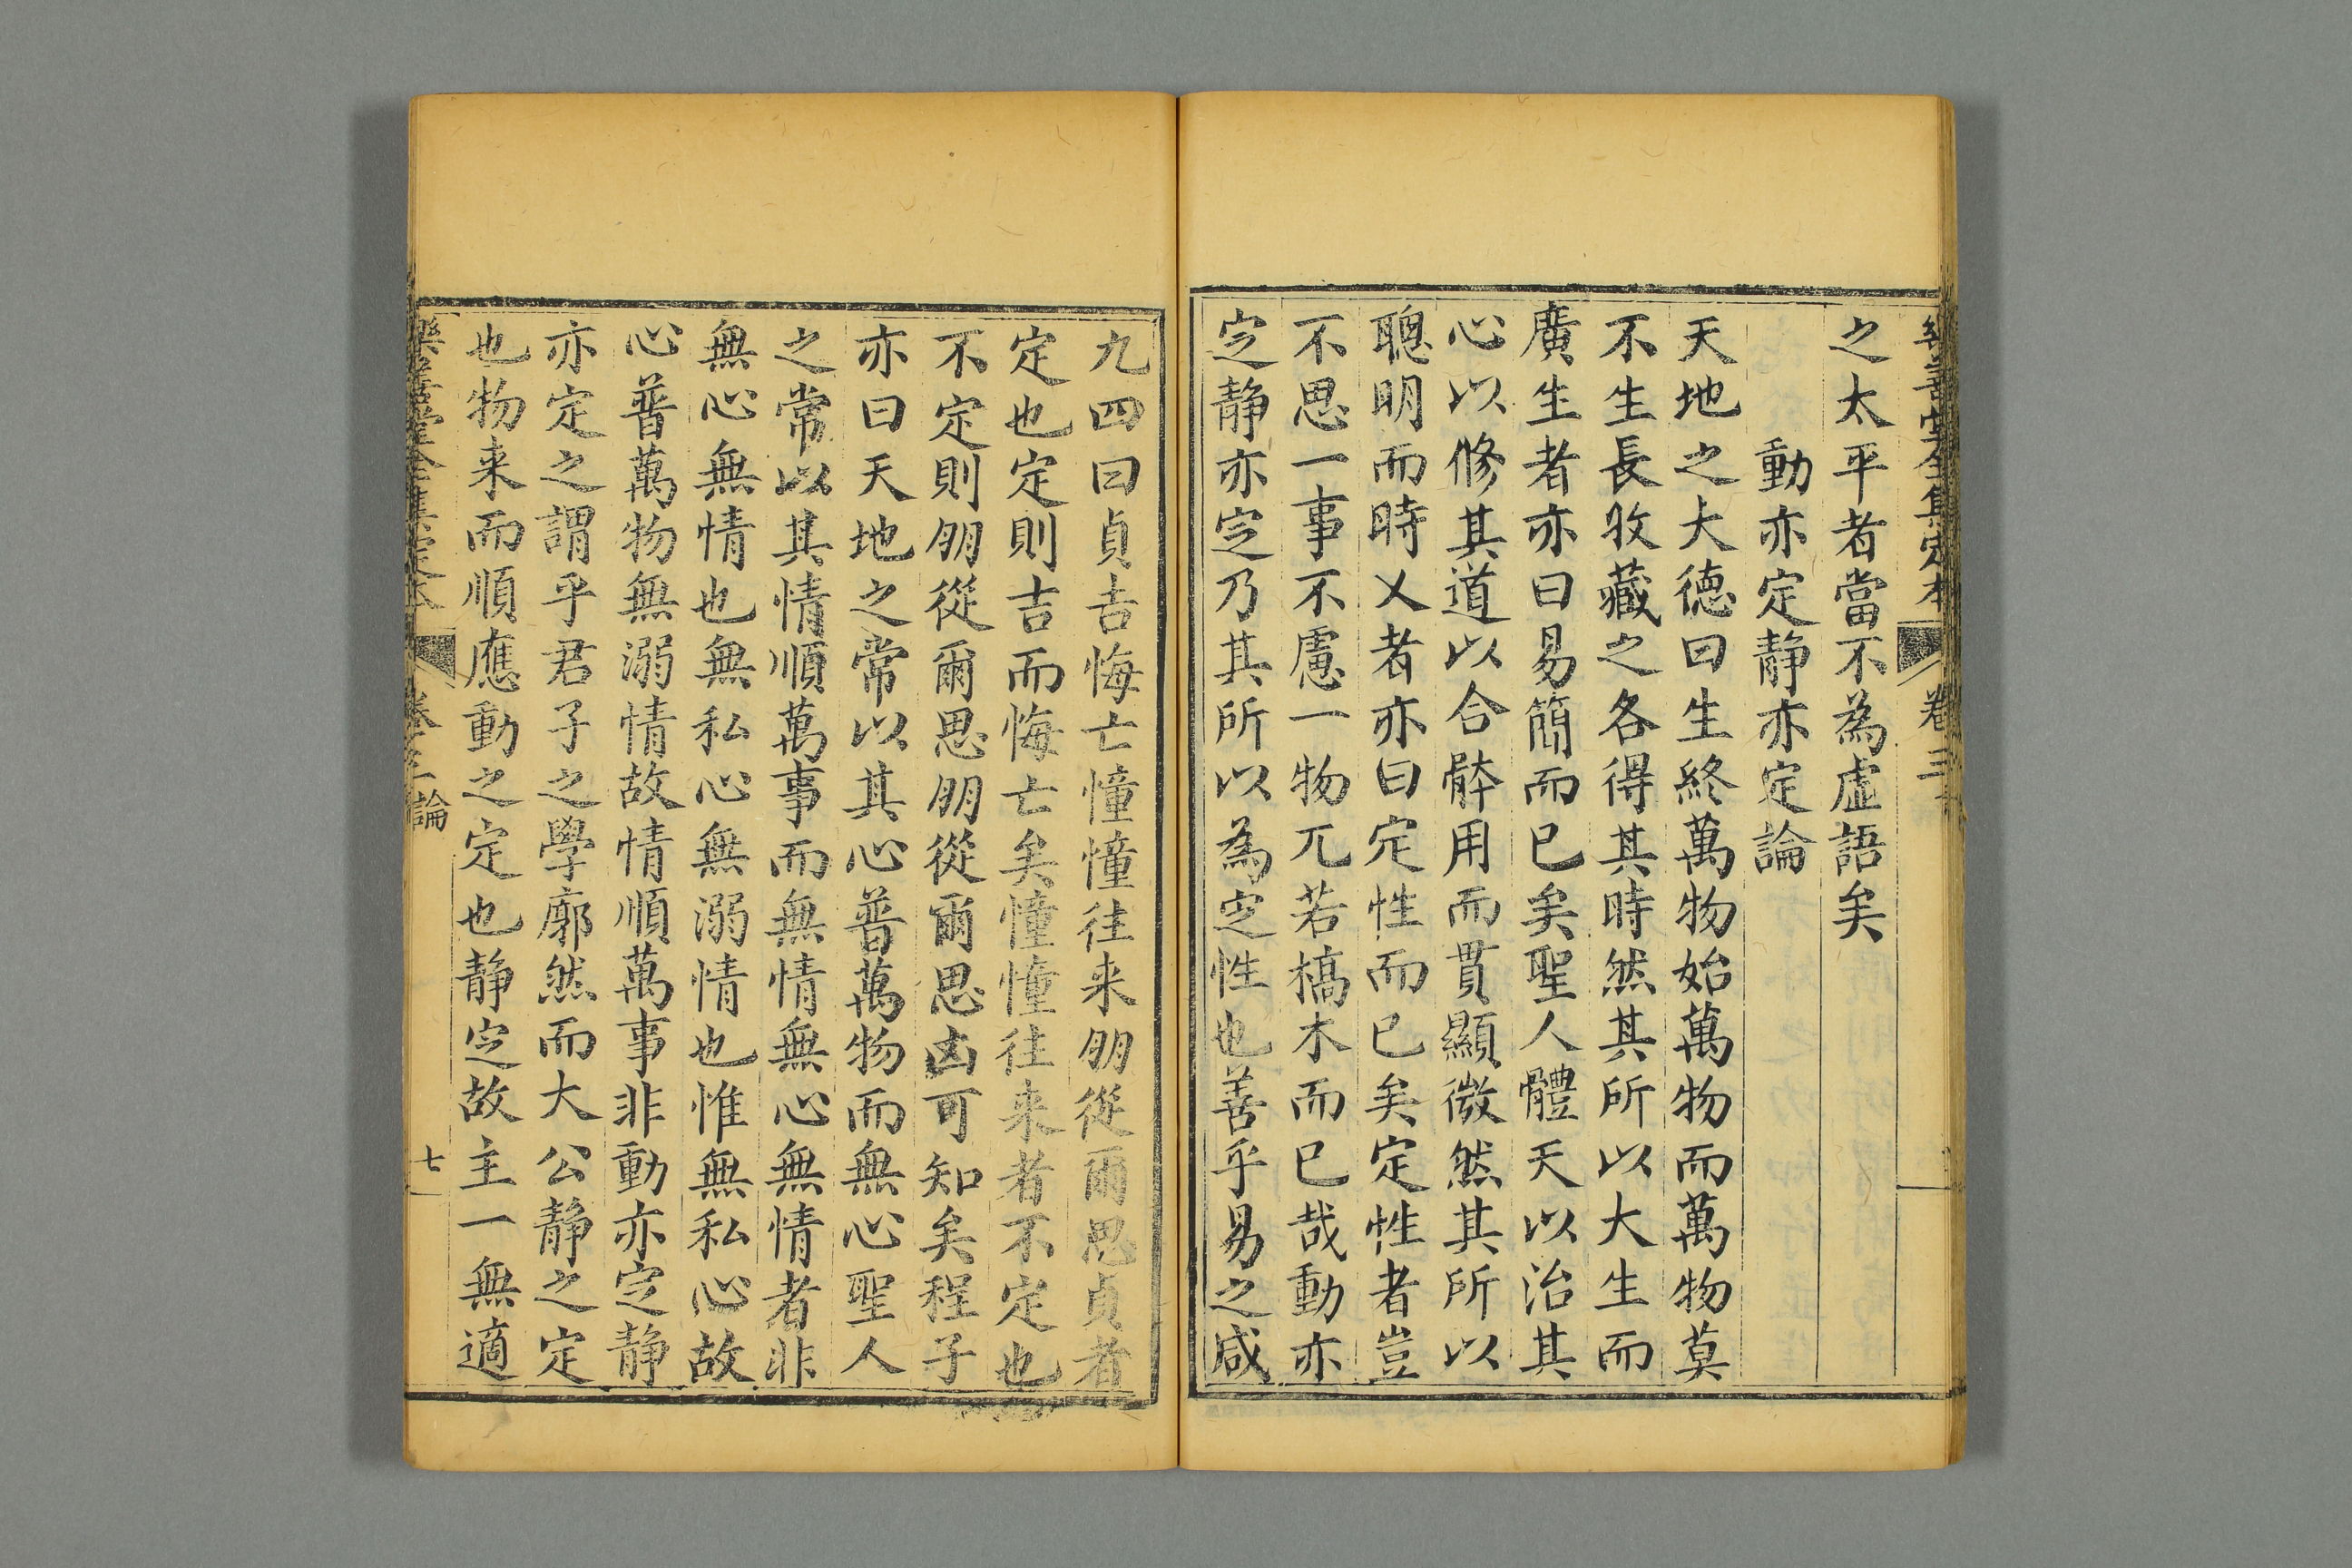 善堂全集定本 卷三
之太平者當不為虛語矣
動亦定静亦定論
天地之大德曰生終萬物始萬物而萬物莫
不生長收藏之各得其時然其所以大生而
廣生者亦曰易簡而已矣聖人體天以治其
心以修其道以合骵用而貫顯微然其所以
聰明而時乂者亦曰定性而已矣定性者豈
不思一事不慮一物兀若槁木而已哉動亦
定静亦定乃其所以為定性也善乎易之咸
九四曰貞吉悔亡憧憧往来朋從爾思貞者
定也定則吉而悔亡矣憧憧往来者不定也
不定則朋從爾思朋從爾思凶可知矣程子
亦曰天地之常以其心普萬物而無心聖人
之常以其情順萬事而無情無心無情者非
無心無情也無私心無溺情也惟無私心故
心普萬物無溺情故情順萬事非動亦定静
亦定之謂乎君子之學廓然而大公静之定
也物来而順應動之定也静定故主一無適
樂善堂全集定本 卷三 論 七